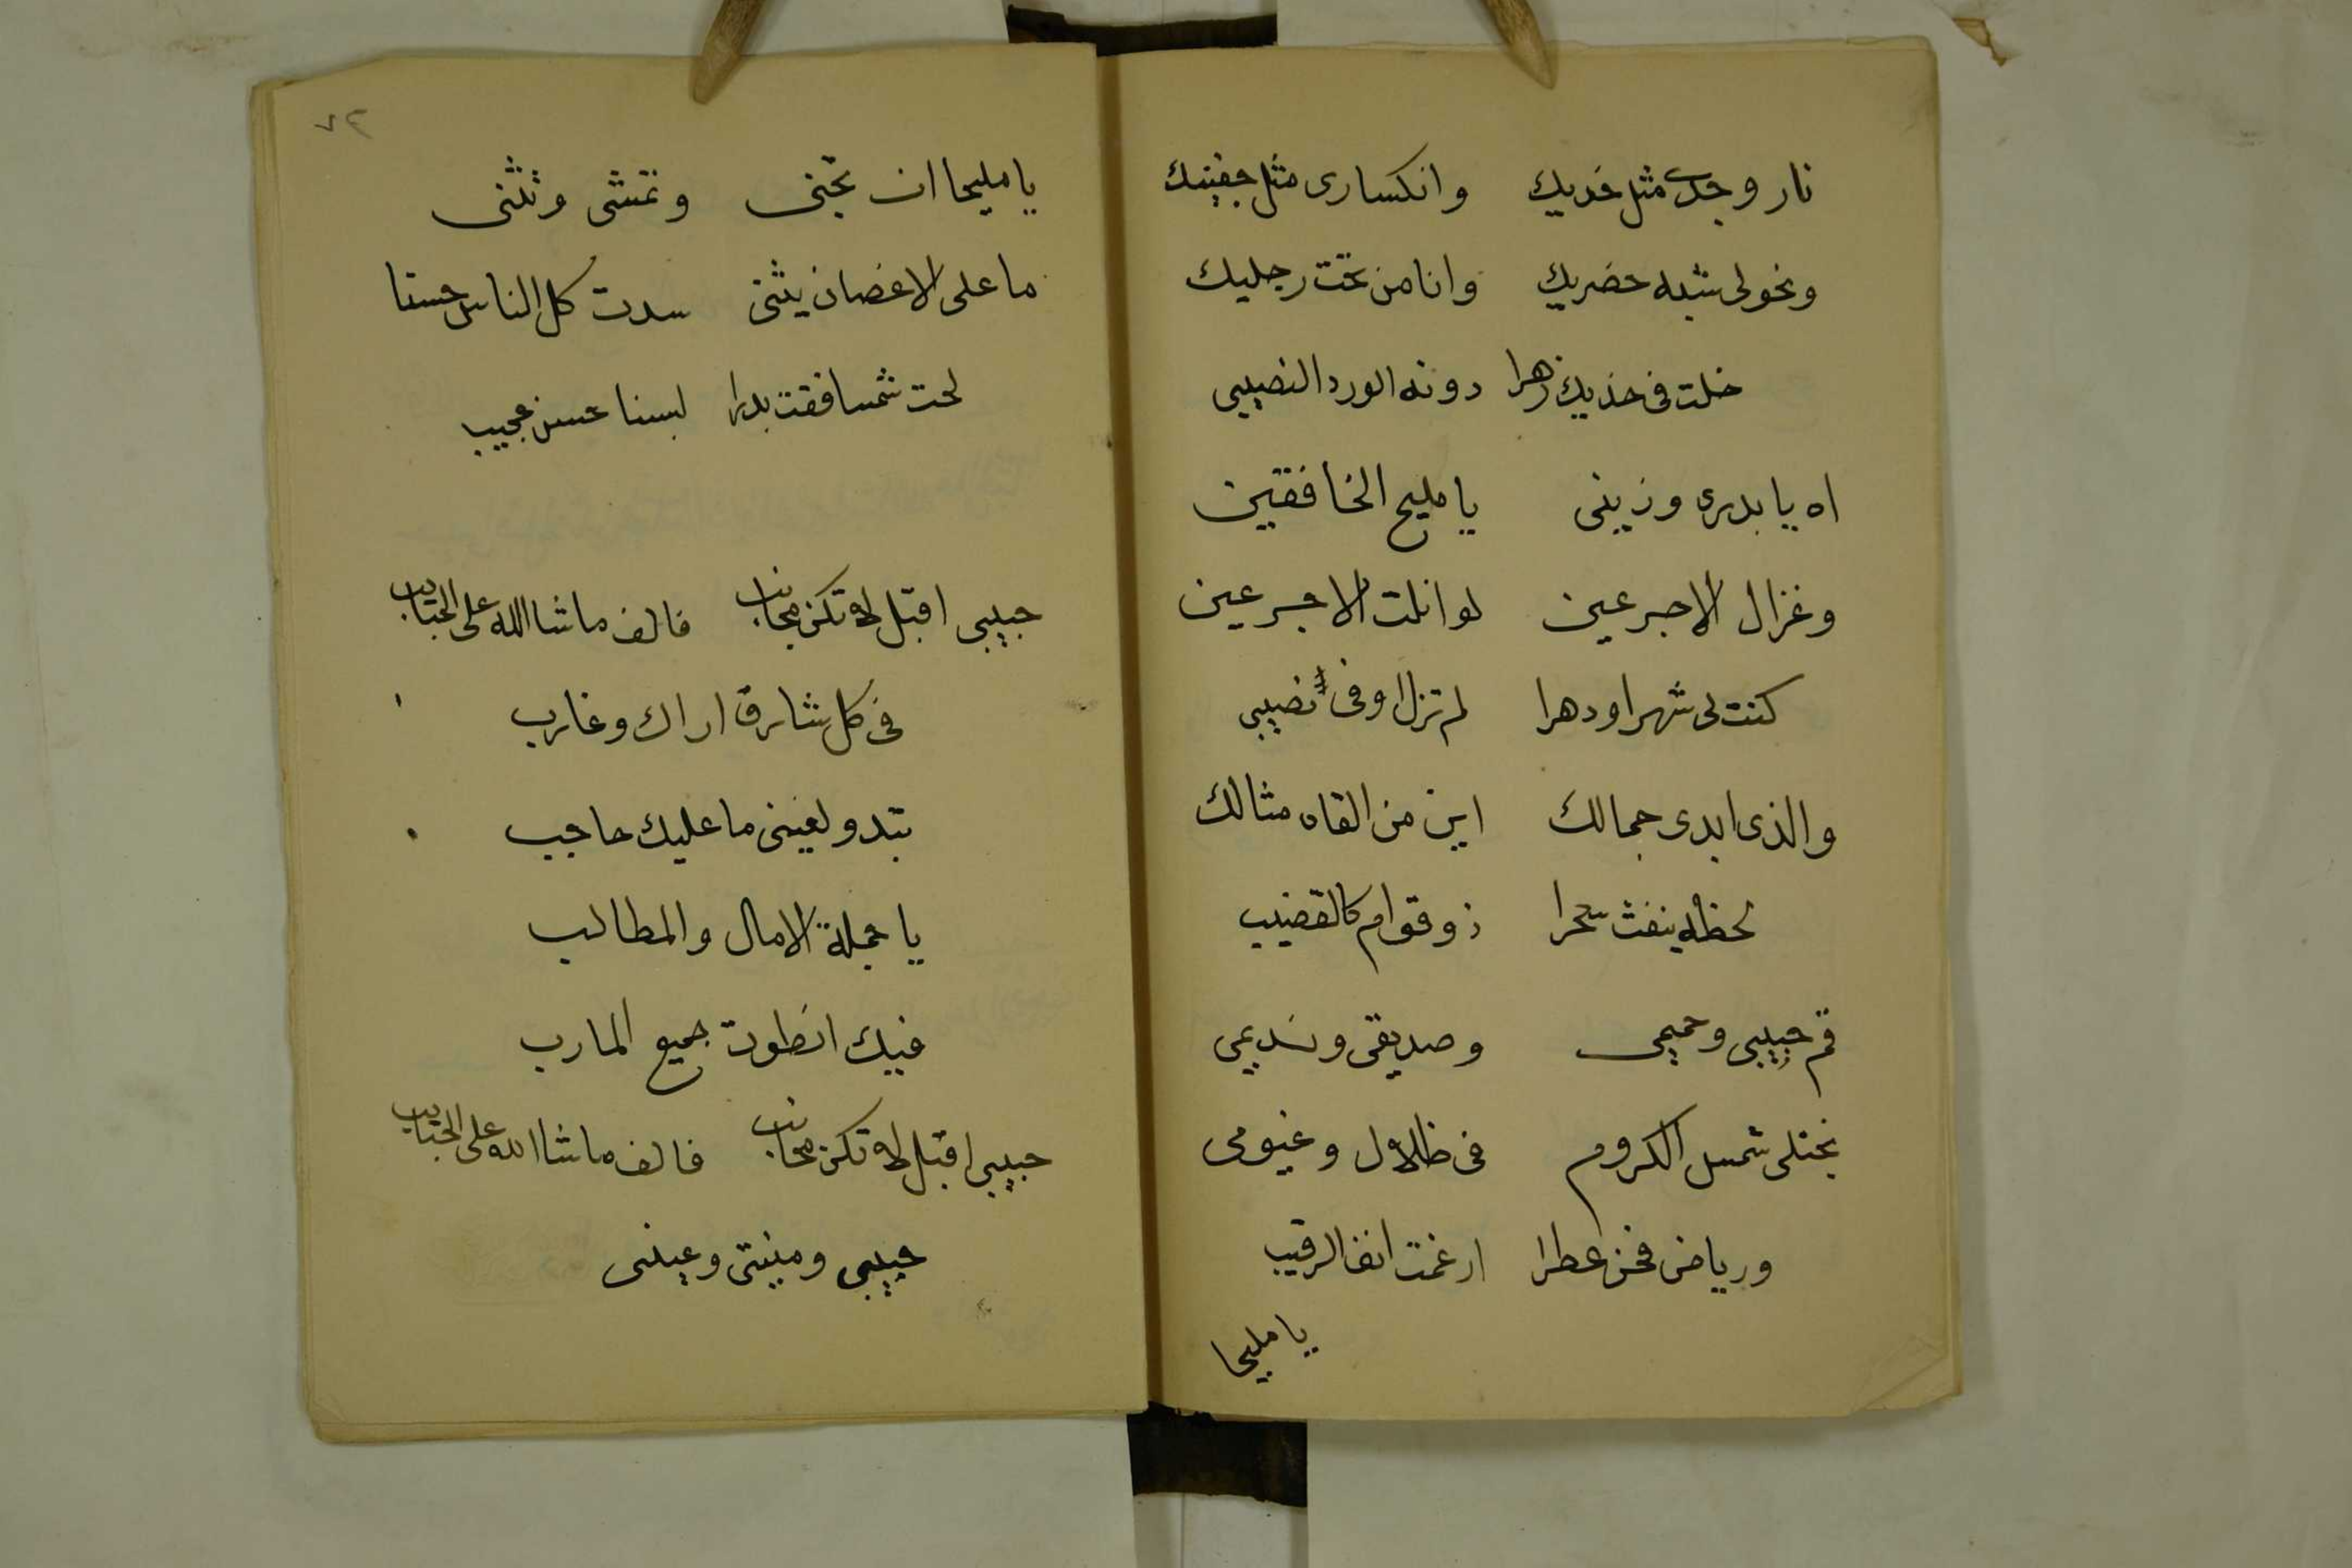 نار وجدى مثل خديك وانكسارى مثل جفنيك
ونحولى شبه خضريك وانا من تحت رجليك
خلت فى خديك زهرا دونه الورد النصيبى
اه يا بدرى وزينى يا مليح الخافقين
وغزال الاجرعين لو انلت الاجرعين
كنت لى شهرا ودهرا لم تزل اوفى نصيبى
والذى ابدى جمالك اين من القاه مثالك
لحظه ينفث سحرا ذو قوام كالقضيب
قم حبيبى وحميمى وصديقى ونديمى
نجتلى شمس الكروم فى ظلال وغيومى
ورياض فحن عطرا ارغمت انف الرقيب
يا مليحا
٧٣
يا مليحا ان تجنى وتمشى وتثنى
ما على الاغصان يثنى سدت كل الناس حسنا
لحت شمسا فقت بدرا لبسنا حسن عجيب
حبيبى اقبل لا تكن مجانب فالف ماشا الله على الحبايب
فى كل شارق اراك وغارب
تبدو لعينى ما عليك حاجب
يا جملة الامال والمطالب
فيك انطوت جميع المارب
حبيبى اقبل لا تكن مجانب فالف ماشا الله على الحبايب
حبيبى ومنيتى وعينى